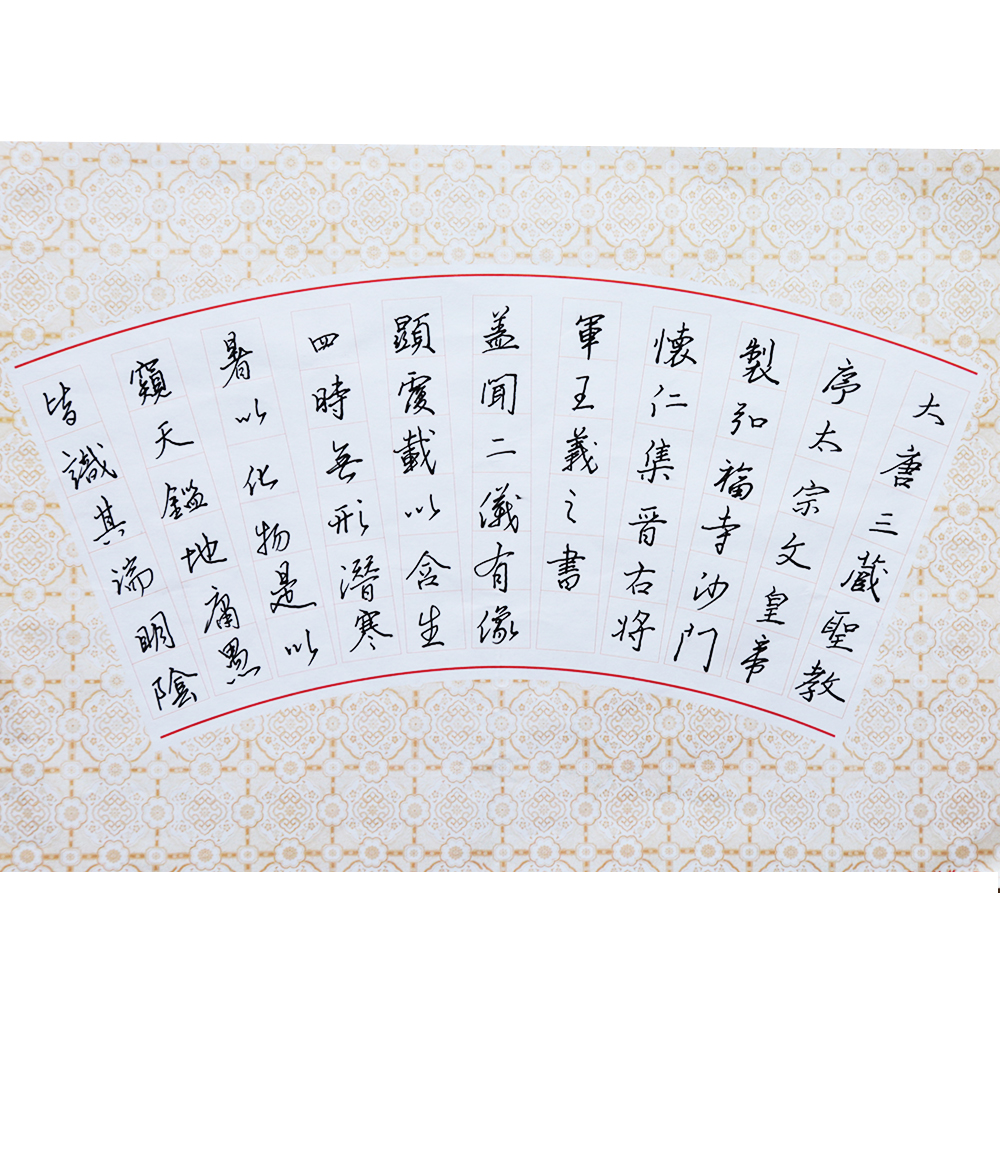 大唐三藏聖教
序太宗文皇帝
製弘福寺沙門
懷仁集晉右將
軍王義之書
蓋聞二儀有像
顯覆載以含生
四時無形潛寒
暑以化物是以
窺天鑑地庸愚
皆識其端明陰